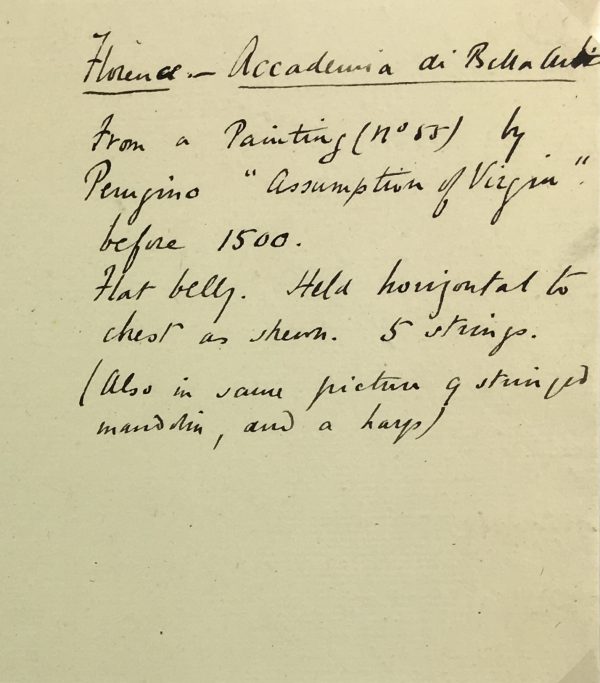 Florence. – Accademia di Bella Arti
From a Painting (No 55) by
Perugino "Assumption of Virgin".
before 1500.
Flat belly. Held horizontal to
chest as shewn. 5 strings.
(Also in same picture 9 stringed
mandolin, and a harp)